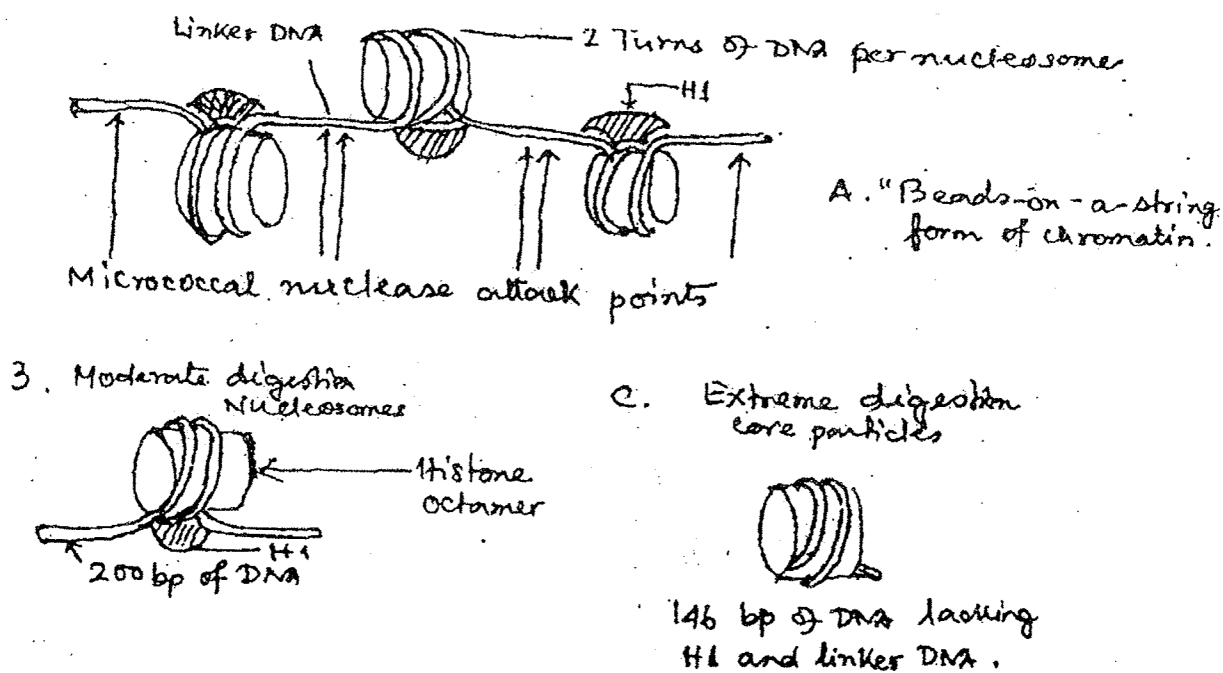 Linker DNA
2 Turns of DNA per nucleosome.
H1
A. "Beads-on-a-string
form of chromatin.
Micrococcal nuclease attack points
3. Moderate digestion
Nucleosomes
Histone
octamer
H1
200 bp of DNA
C. Extreme digestion
core particles
146 bp of DNA lacking
H1 and linker DNA.